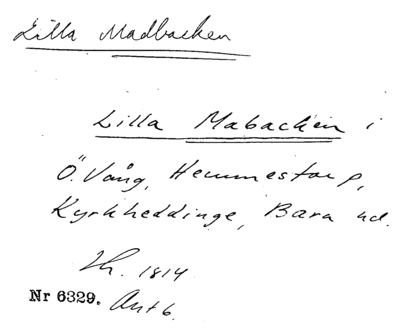 Lilla Madbacken
Lilla Mabacken i
Ö. Vång, Hemmestorp,
Kyrkheddinge, Bara hd.
Lh. 1814
Nr 6329. Ant 6.